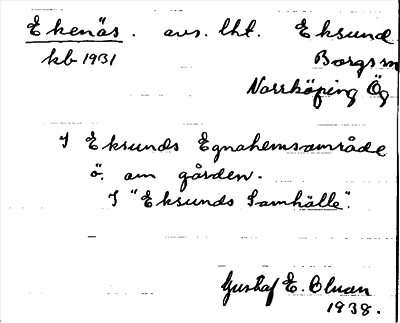 Ekenäs. avs. lht. Eksund
kb 1931 Borgs sn
Norrköping Ög
I Eksunds Egnahemsområde
ö. om gården.
I "Eksunds Samhälle".
Gustaf E. Bluan
1938.